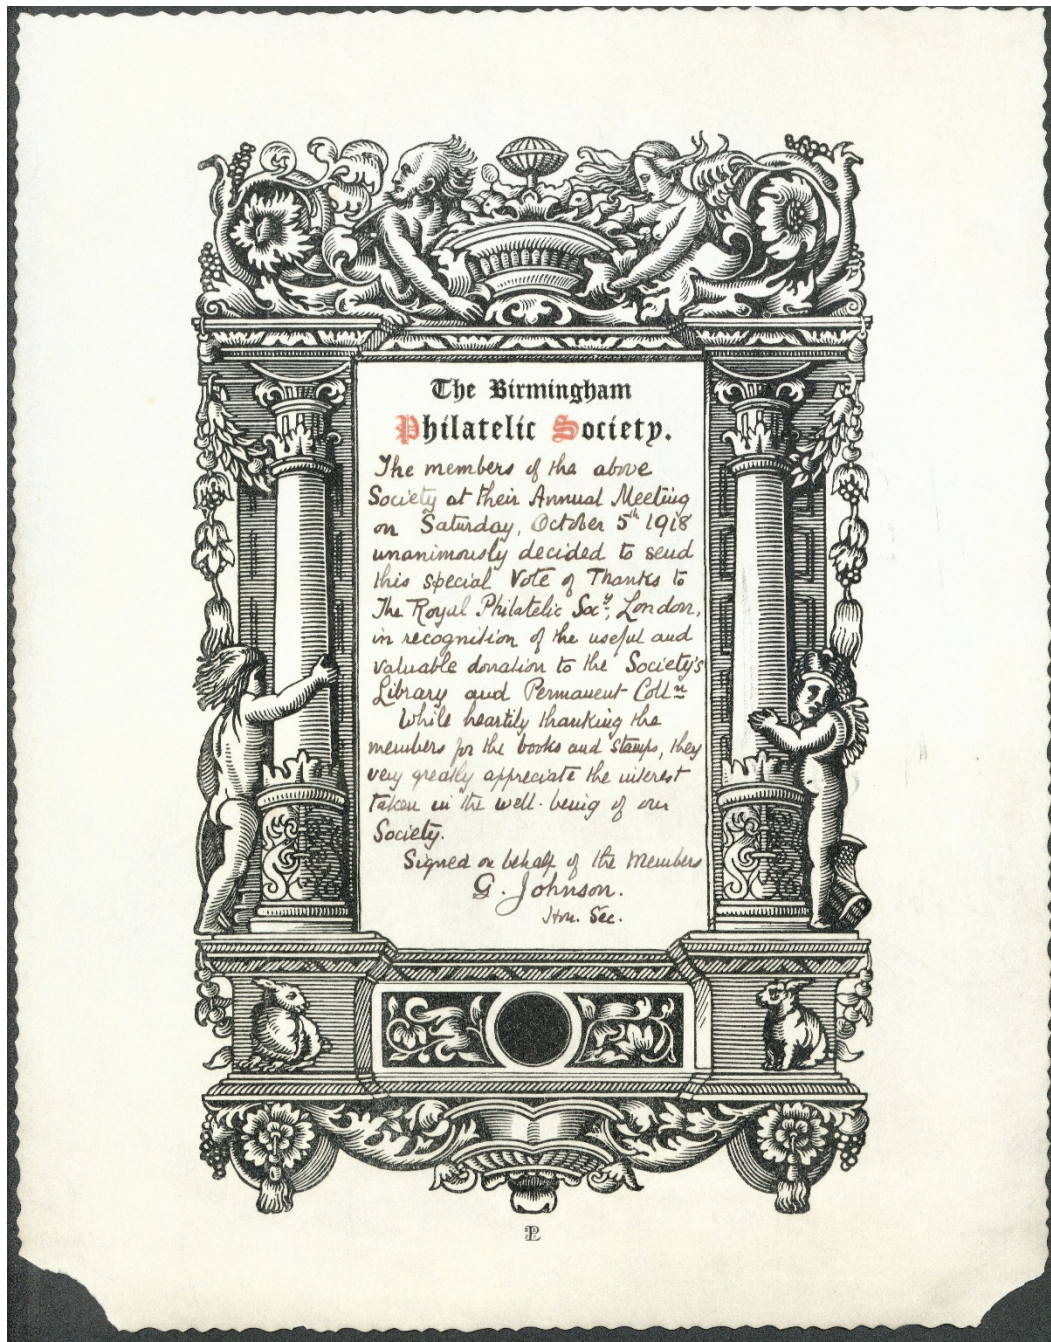 The Birmingham
Philatelic Society.
The members of the above
Society at their Annual Meeting
on Saturday, October 5th 1918
unanimously decided to send
this special Vote of Thanks to
The Royal Philatelic Socy, London,
in recognition of the useful and
valuable donation to the Society's
Library and Permanent Colln
While heartily thanking the
members for the books and stamps, they
very greatly appreciate the interest
taken in the well-being of our
Society.
Signed on behalf of the Members
G. Johnson.
Hon. Sec.